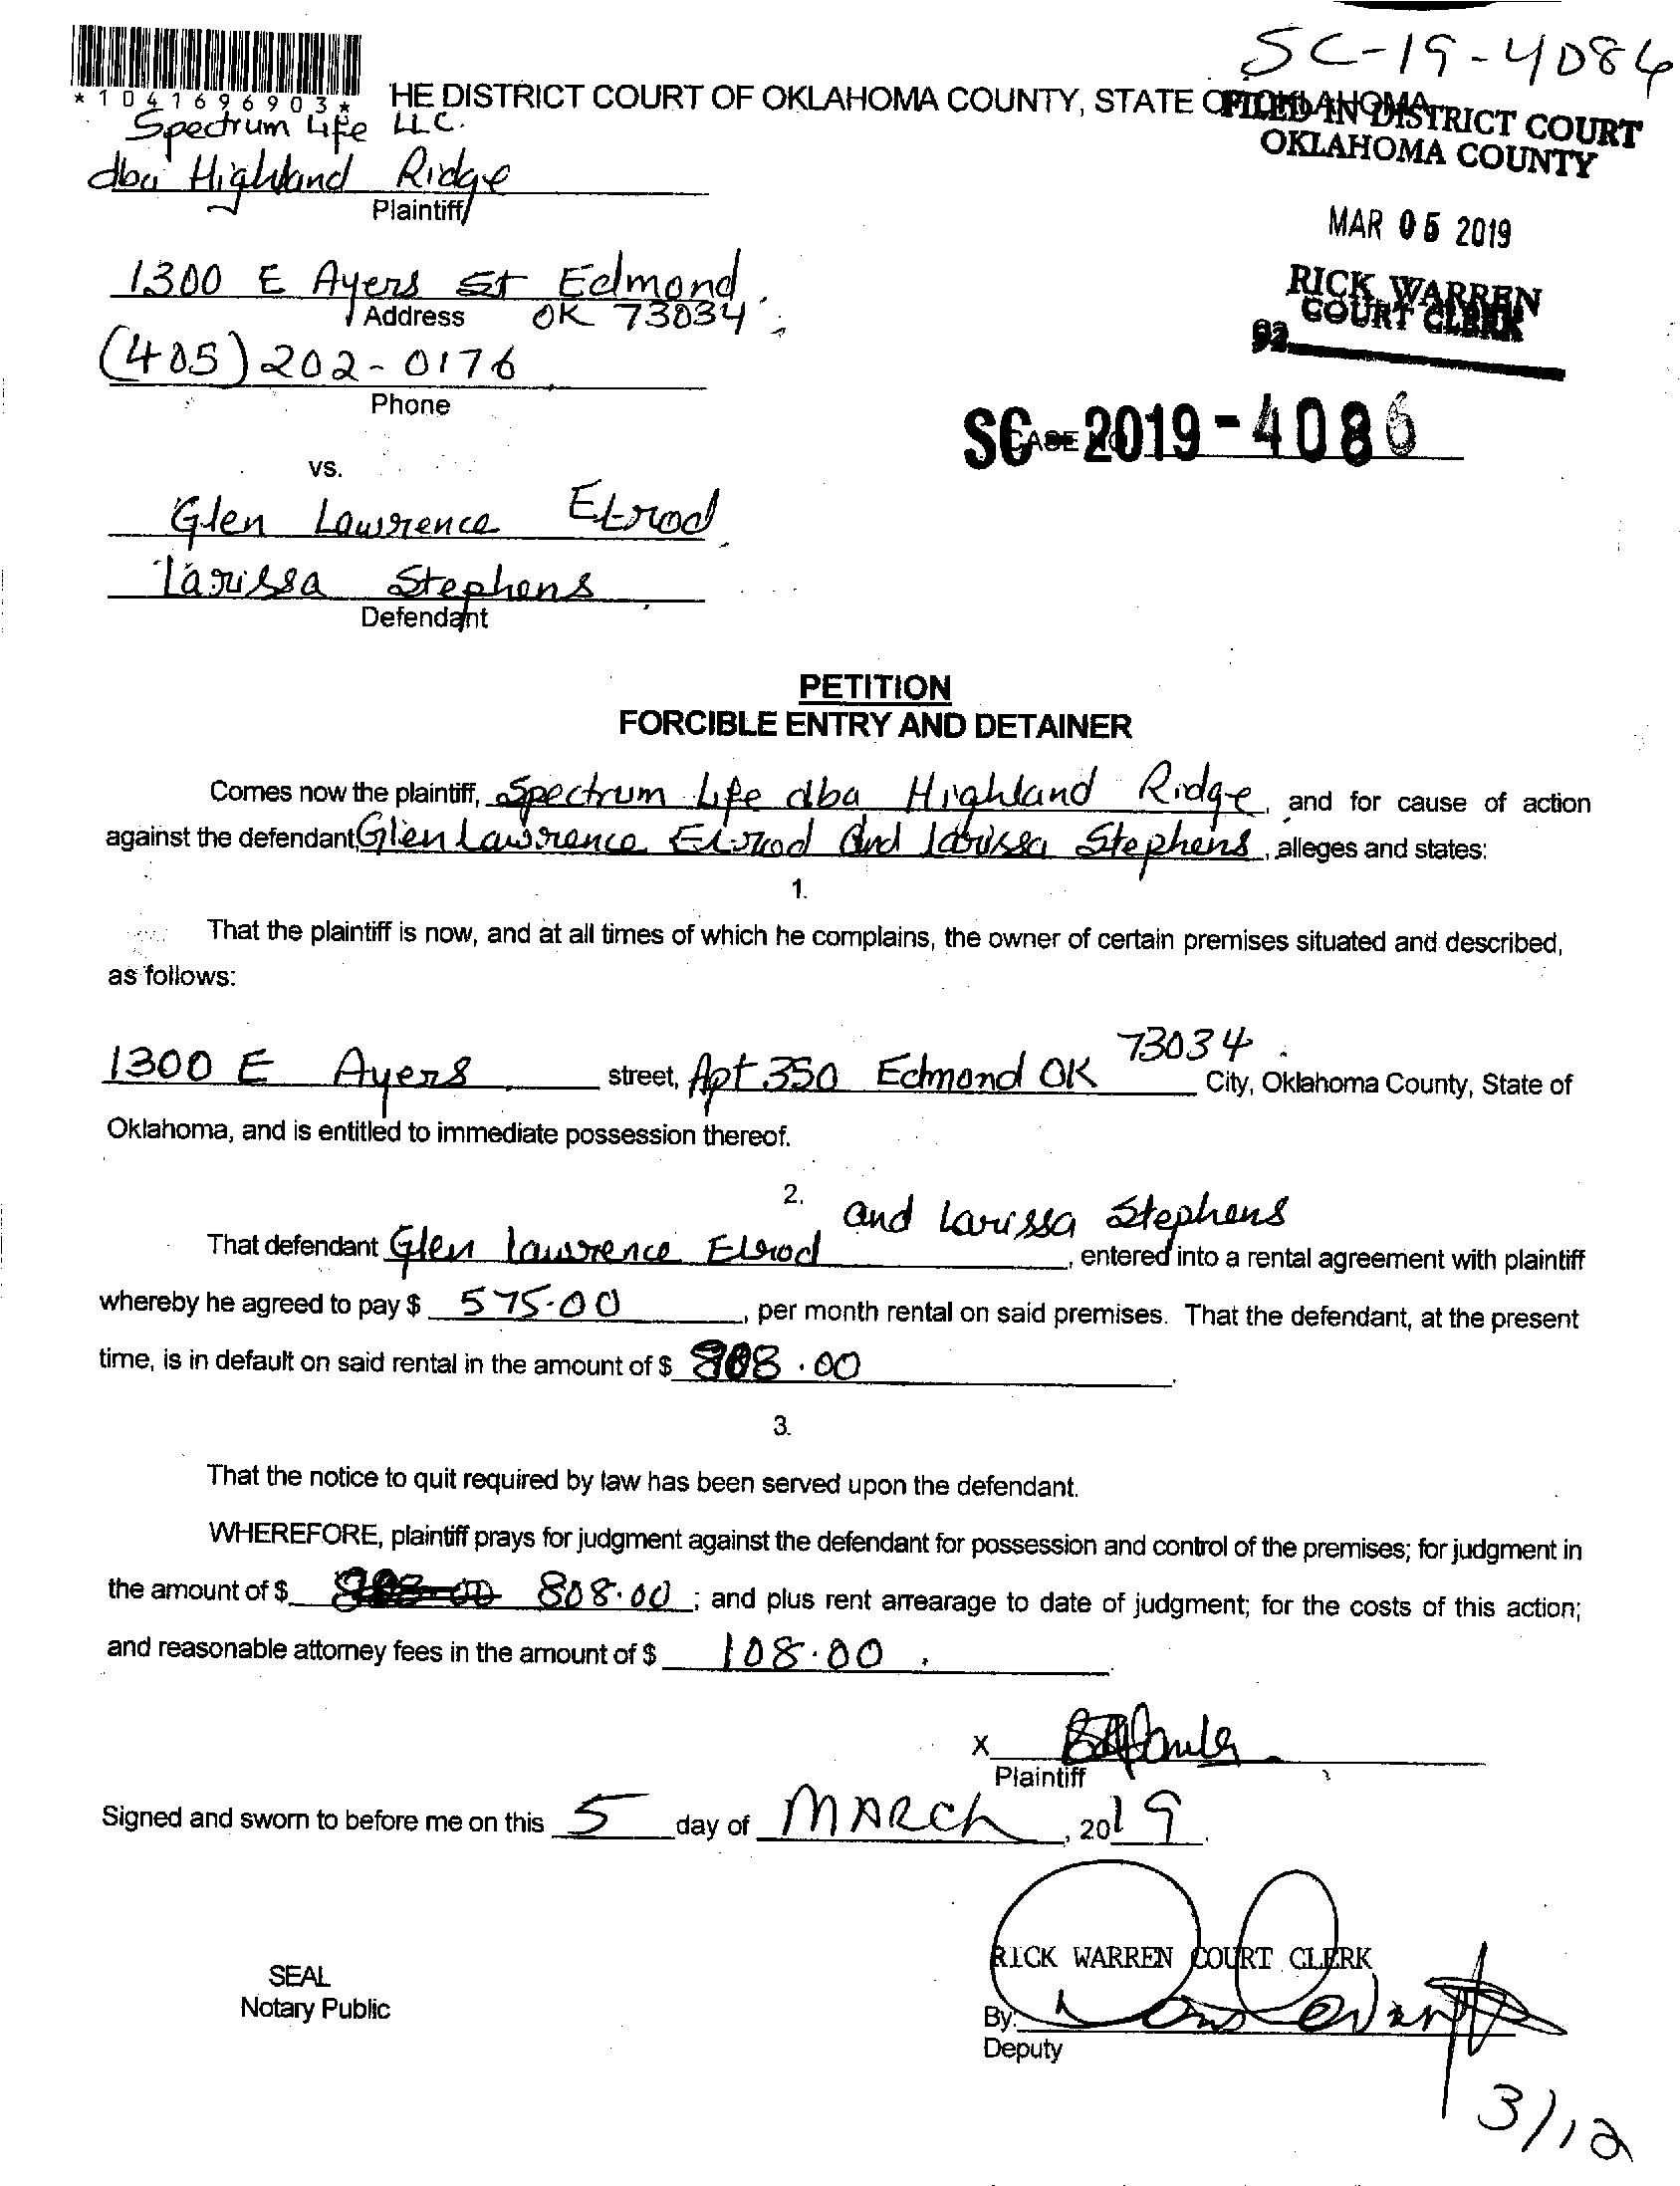 SC-19-4086
*1041696903*
HE DISTRICT COURT OF OKLAHOMA COUNTY, STATE OF OKLAHOMA
FILED IN DISTRICT COURT
OKLAHOMA COUNTY
Spectrum Life LLC.
dba Highland Ridge
Plaintiff
MAR 05 2019
RICK WARREN
COURT CLERK
1300 E Ayers St Edmond
Address OK 73034
(405) 202-0176
Phone
SC-2019-4086
CASE NO
vs.
Glen Lawrence Elrod
Larissa Stephens
Defendant
PETITION
FORCIBLE ENTRY AND DETAINER
Comes now the plaintiff, Spectrum Life dba Highland Ridge, and for cause of action
against the defendant, Glen Lawrence Elrod and Larissa Stephens, alleges and states:
1.
That the plaintiff is now, and at all times of which he complains, the owner of certain premises situated and described,
as follows:
1300 E Ayers street, Apt 350 Edmond OK 73034 City, Oklahoma County, State of
Oklahoma, and is entitled to immediate possession thereof.
2.
That defendant Glen Lawrence Elrod and Larissa Stephens, entered into a rental agreement with plaintiff
whereby he agreed to pay $ 575.00, per month rental on said premises. That the defendant, at the present
time, is in default on said rental in the amount of $ 808.00
3.
That the notice to quit required by law has been served upon the defendant.
WHEREFORE, plaintiff prays for judgment against the defendant for possession and control of the premises; for judgment in
the amount of $ 808.00; and plus rent arrearage to date of judgment; for the costs of this action;
and reasonable attorney fees in the amount of $ 108.00.
X
Plaintiff
Signed and sworn to before me on this 5 day of MARCH, 2019.
RICK WARREN COURT CLERK
SEAL
Notary Public
By:
Deputy
3/12